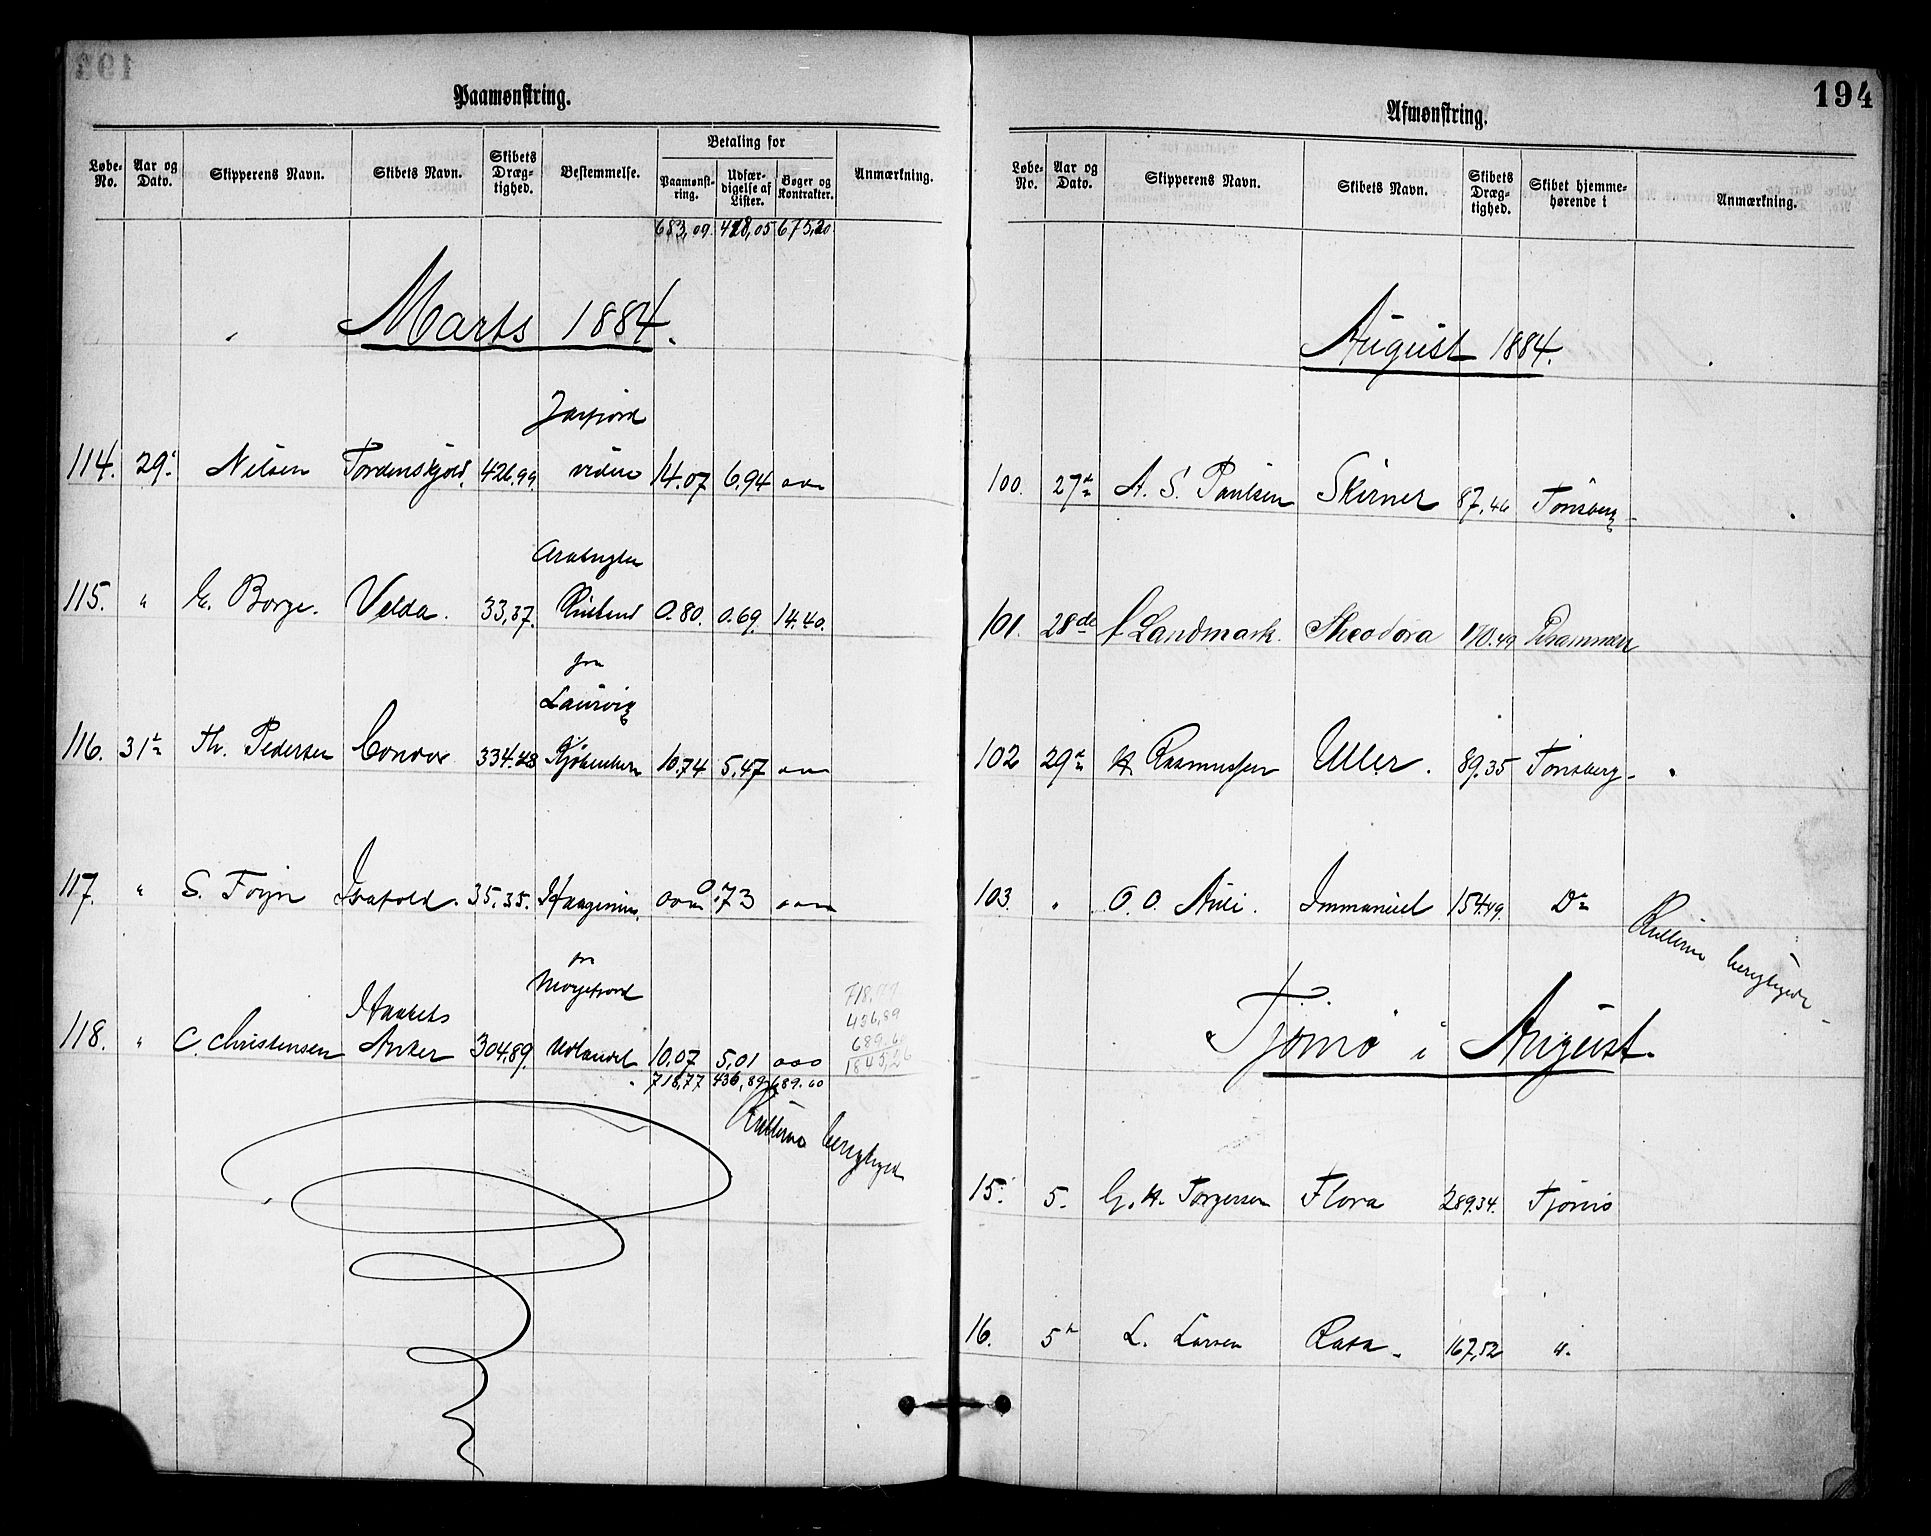 194
Paamønstring.
Løbe-No. Aar og Dato. Skipperens Navn. Skibets Navn. Skibets Dræg-tighed. Bestemmelse. Betaling for Paamønst-ring. Udfær-digelse af Lister. Bøger og Kontrakter. Anmærkning.
683,09 428,05 675,20
Marts 1884.
114. 29. Nilsen Tordenskjold. 426.99 14.07 6.94
115. " E. Borge. Velda. 33,37. 0.80. 0.69. 14.40.
fra
Laurvig
116. 31te Th. Pedersen Condor 334.28 Kjøbenhavn 10.74 5.47
117. " S. Foyn Isafold. 35.35. 0.73
fra
118. " C. Christensen Haabets Anker 304.89. Udlandet 10.07 5,01
718,77 436,89 689.60
718,77
436,89
689.60
1845,26
Afmønstring.
Løbe-No. Aar og Dato. Skipperens Navn. Skibets Navn. Skibets Dræg-tighed. Skibet hjemme-hørende i Anmærkning.
August 1884.
100. 27de A. S. Paulsen Skirner 87,46 Tønsberg
101. 28de Landmark. Theodora 170.49 Drammen
102 29de H Rasmussen Uller. 89.35 Tønsberg
103. " O. O. Auli. Immanuel 154.49. Do
Tjømø i August.
15. 5. G. H. Torgersen Flora 289.34. Tjømø
16. 5te L. Larsen Rota 167,52 ".